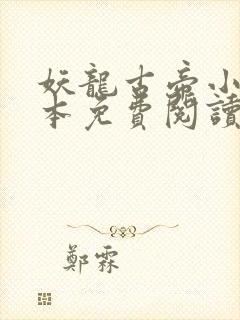 妖龍古帝小
本免費閱讀
鄭霖